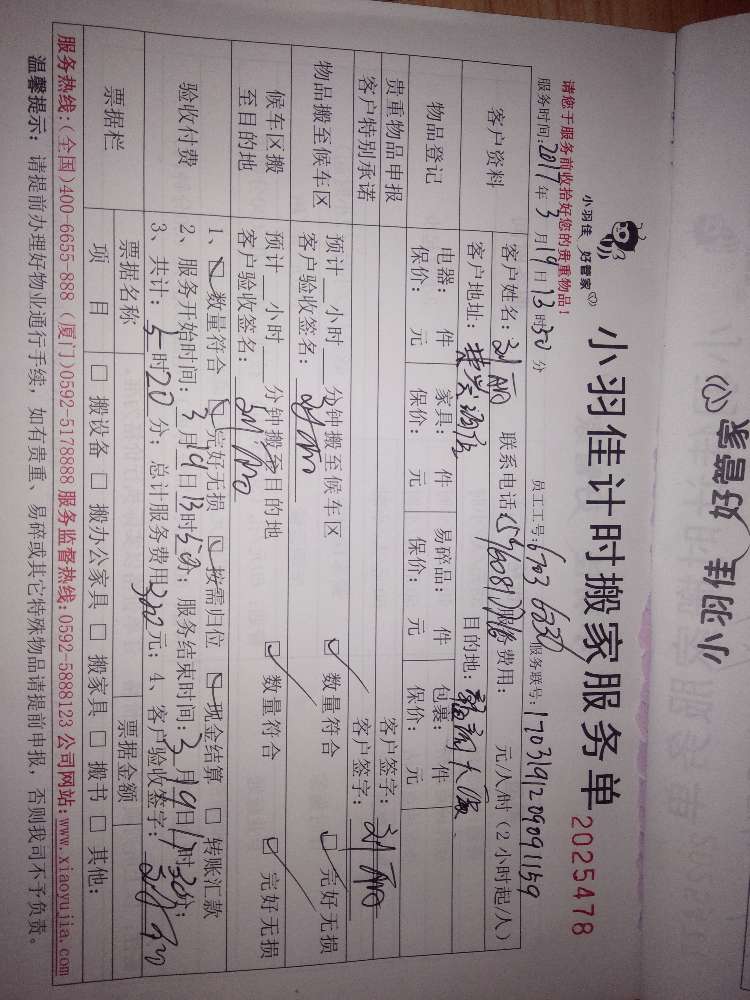 小羽佳
家管好
小羽佳 好管家
小羽佳计时搬家服务单 2025478
请您于服务前收拾好您的贵重物品!
服务时间:2017年3月19日13时30分 员工工号:6703 6330 服务联号:170319120909 1159
客户资料
客户姓名: 联系电话: 服务费用: 元/人/时(2小时起/人)
客户地址: 目的地: 大厦
物品登记
电器: 件 家具: 件 易碎品: 件 包裹: 件
保价: 元 保价: 元 保价: 元 保价: 元
贵重物品申报 客户签字:
客户特别承诺 客户签字:
物品搬至候车区
预计 小时 分钟搬至候车区 ☑ 数量符合 ☑ 完好无损
客户验收签名:
候车区搬至目的地
预计 小时 分钟搬至目的地 ☑ 数量符合 ☑ 完好无损
客户验收签名:
验收付费
1、☑ 数量符合 ☑ 完好无损 ☑ 按需归位 ☑ 现金结算 □ 转账汇款
2、服务开始时间:3月19日13时50分; 服务结束时间:3月19日17时30分;
3、共计: 时20分; 总计服务费用:320元; 4、客户验收签字:
票据栏
票据名称 票据金额
项 目 □ 搬设备 □ 搬办公家具 □ 搬家具 □ 搬书 □ 其他:
服务热线:(全国)400-6655-888 (厦门)0592-5178888 服务监督热线:0592-5888123 公司网站:www.xiaoyujia.com
温馨提示: 请提前办理好物业通行手续,如有贵重、易碎或其它特殊物品请提前申报,否则我司不予负责。